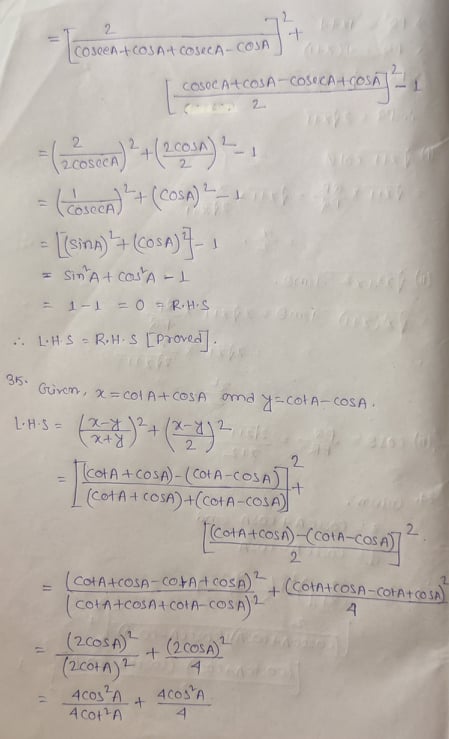 = [2 / (cosecA + cosA + cosecA - cosA)]² +
[(cosecA + cosA - cosecA + cosA) / 2]² - 1
= (2 / 2cosecA)² + (2cosA / 2)² - 1
= (1 / cosecA)² + (cosA)² - 1
= [(sinA)² + (cosA)²] - 1
= sin²A + cos²A - 1
= 1 - 1 = 0 = R.H.S
∴ L.H.S = R.H.S [Proved].
35. Given, x = cotA + cosA and y = cotA - cosA.
L.H.S = ((x-y) / (x+y))² + ((x-y) / 2)²
= [((cotA + cosA) - (cotA - cosA)) / ((cotA + cosA) + (cotA - cosA))]² +
[((cotA + cosA) - (cotA - cosA)) / 2]².
= (cotA + cosA - cotA + cosA)² / (cotA + cosA + cotA - cosA)² + (cotA + cosA - cotA + cosA)² / 4
= (2cosA)² / (2cotA)² + (2cosA)² / 4
= 4cos²A / 4cot²A + 4cos²A / 4